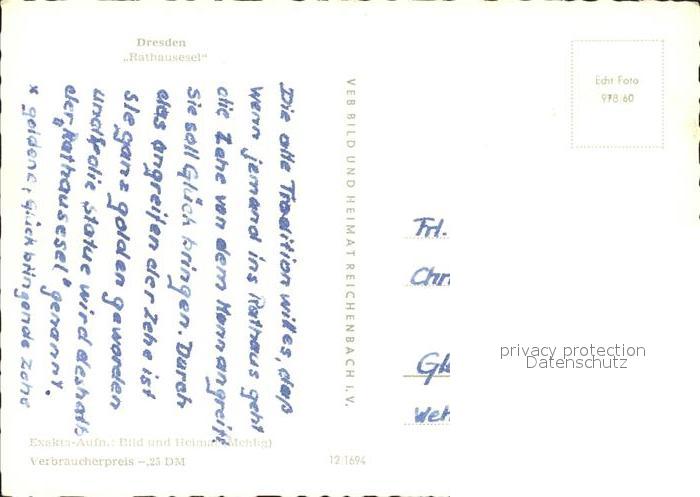 Dresden
„Rathausesel“
Die alte Tradition will es, daß
wenn jemand ins Rathaus geht
die Zehe von dem Mann angreift
Sie soll Glück bringen. Durch
das angreifen der Zehe ist
sie ganz golden geworden
und die Statue wird deshalb
der „Rathausesel“ genannt.
* goldene, Glückbringende Zehe
Exakta-Aufn.: Bild und Heimat (Mehlig)
Verbraucherpreis –,25 DM
12/1694
VEB BILD UND HEIMAT REICHENBACH I. V.
Echt Foto
978/60
Frl.
Chri
Gl
privacy protection
Datenschutz